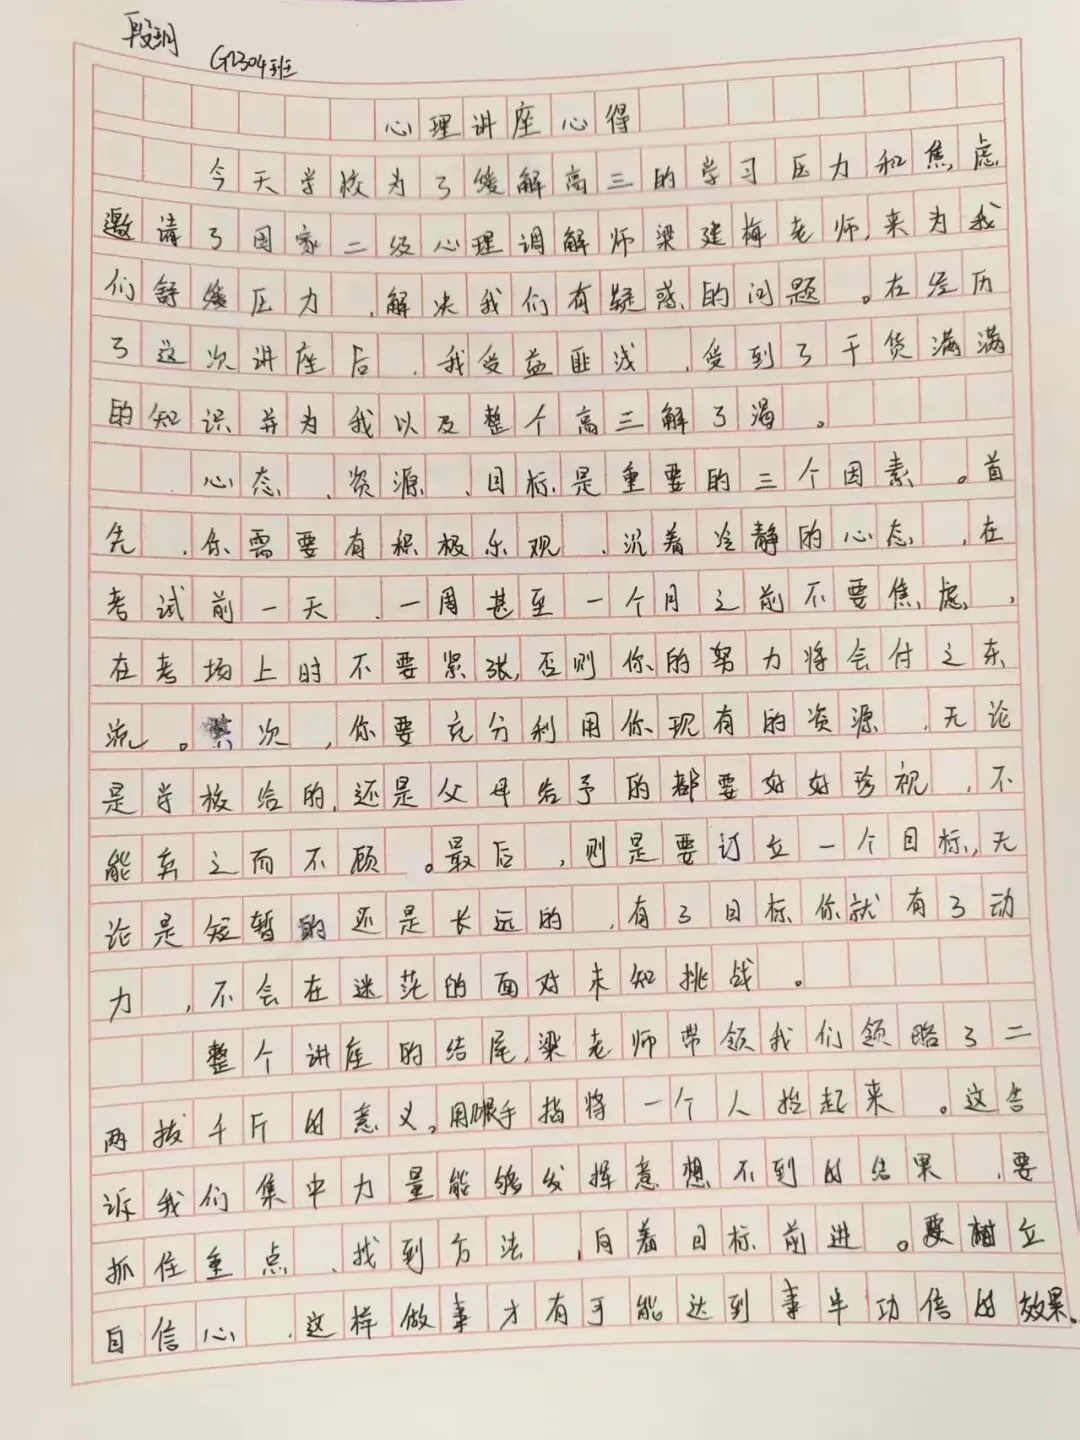 段玥
G2304班
心理讲座心得
今天学校为了缓解高三的学习压力和焦虑
邀请了国家二级心理调解师梁建梅老师,来为我
们舒缓压力,解决我们有疑惑的问题。在经历
了这次讲座后,我受益匪浅,受到了干货满满
的知识并为我以及整个高三解了渴。
心态、资源、目标是重要的三个因素。首
先,你需要有积极乐观、沉着冷静的心态,在
考试前一天、一周甚至一个月之前不要焦虑,
在考场上时不要紧张,否则你的努力将会付之东
流。其次,你要充分利用你现有的资源,无论
是学校给的,还是父母给予的都要好好珍视,不
能弃之而不顾。最后,则是要订立一个目标,无
论是短暂的还是长远的,有了目标你就有了动
力,不会在迷茫的面对未知挑战。
整个讲座的结尾,梁老师带领我们领略了二
两拔千斤的意义。用哏手指将一个人抬起来。这告
诉我们集中力量能够发挥意想不到的结果,要
抓住重点、找到方法,向着目标前进。要树立
自信心,这样做事才有可能达到事半功倍的效果。